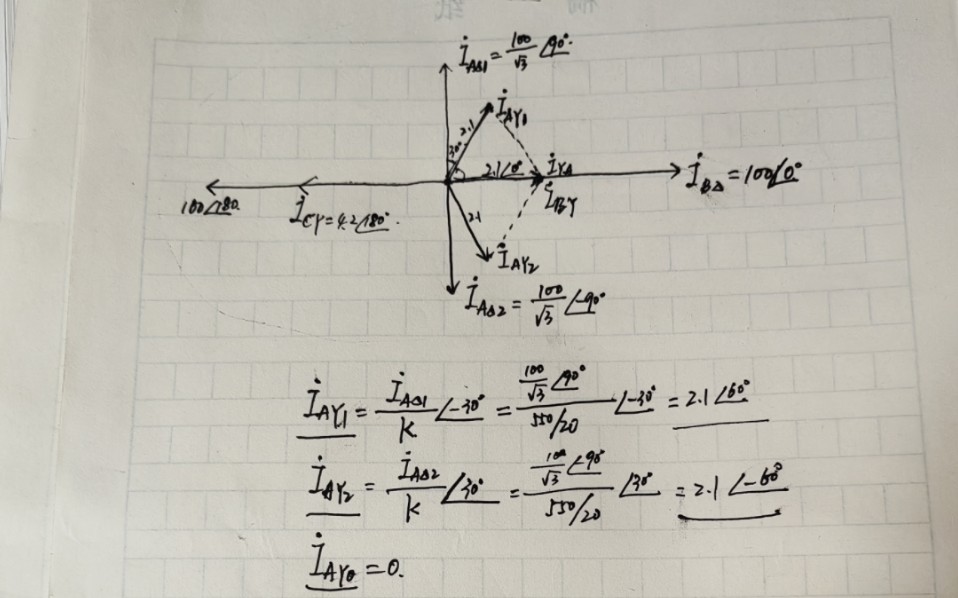 İ_AΔ1 = 100/√3 ∠90°
İ_AY1
2.1
30°
2.1∠0°
İ_BY
İ_BΔ = 100∠0°
100∠180
İ_CY = 4.2∠180°
2.1
İ_AY2
İ_AΔ2 = 100/√3 ∠-90°
İ_AY1 = İ_AΔ1/K ∠-30° = (100/√3 ∠90°)/(550/20) ∠-30° = 2.1∠60°
İ_AY2 = İ_AΔ2/K ∠30° = (100/√3 ∠-90°)/(550/20) ∠30° = 2.1∠-60°
İ_AY0 = 0.